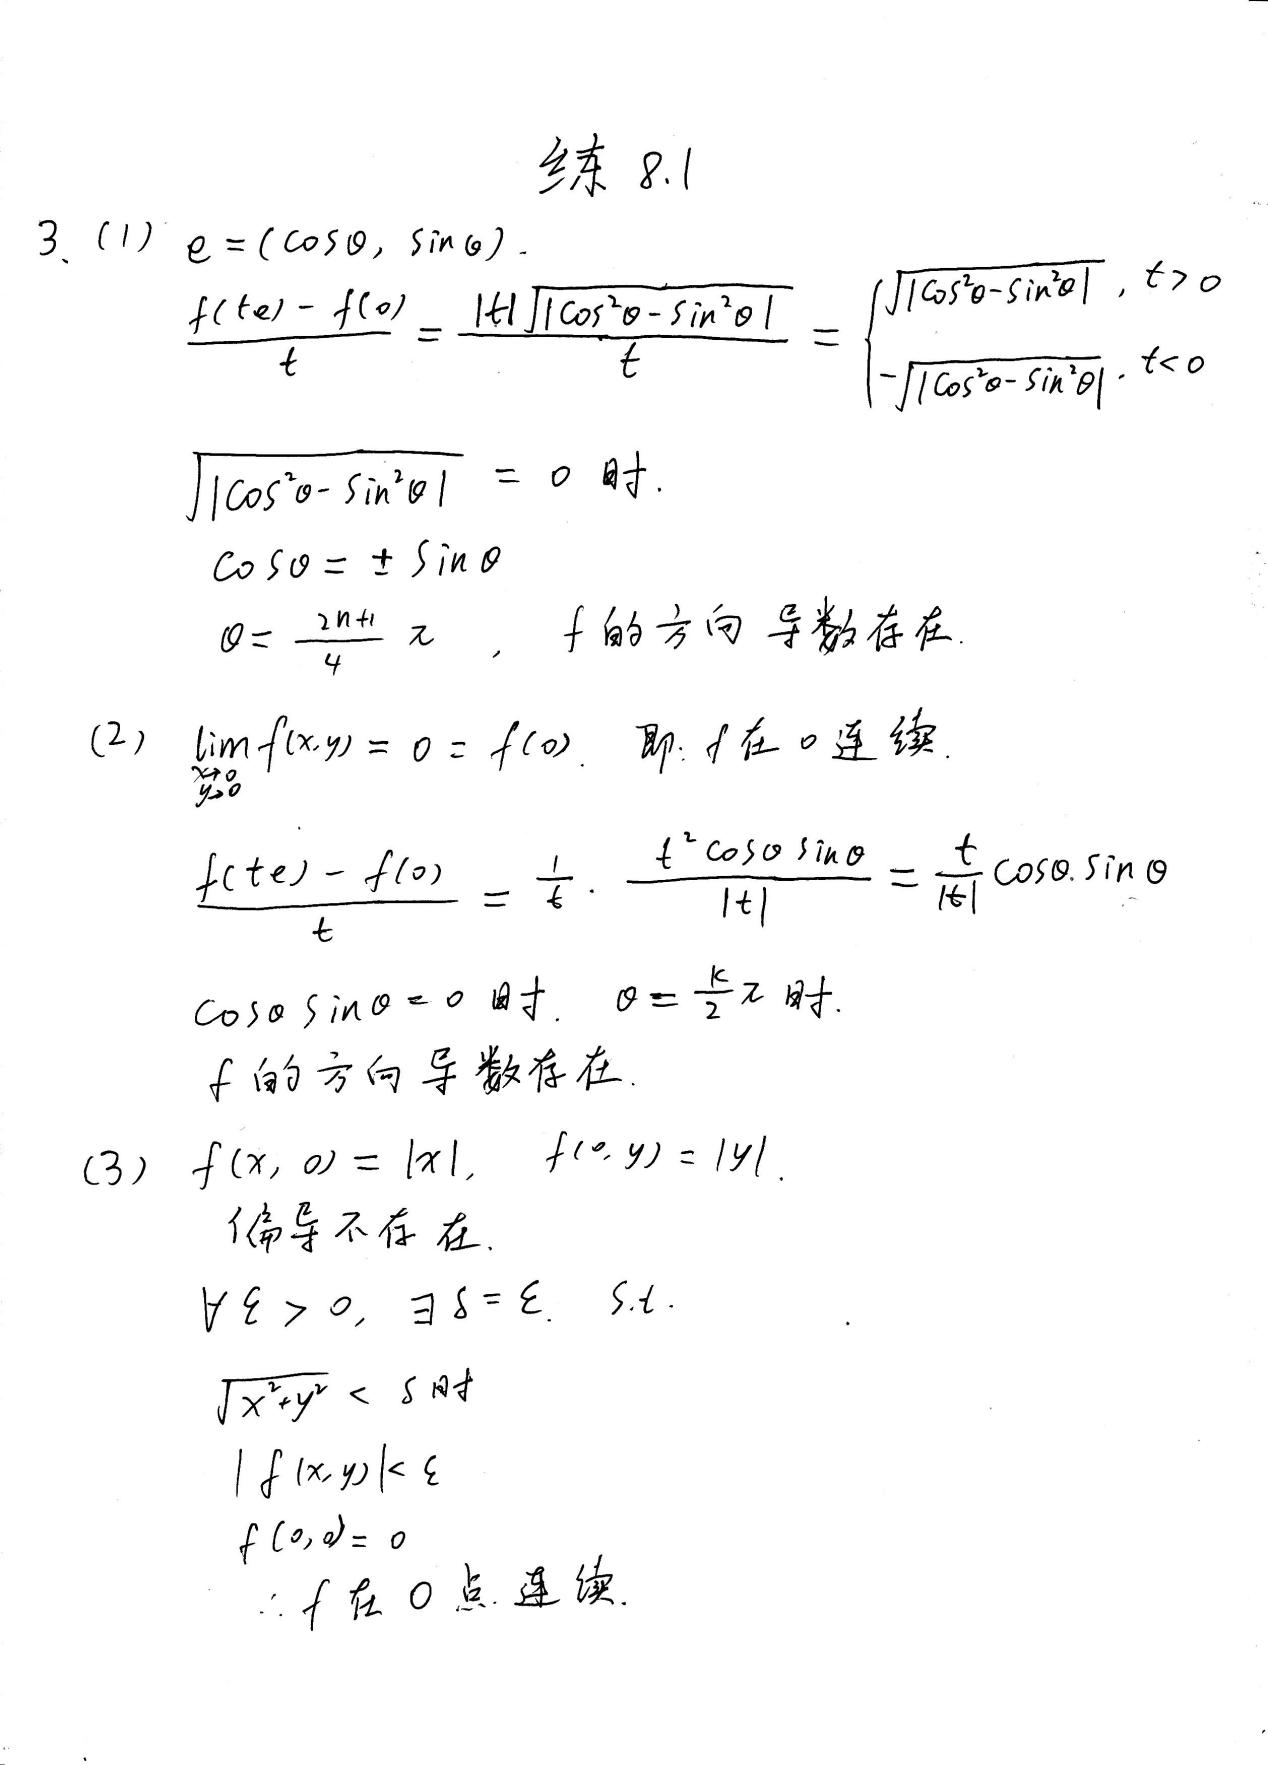 练 8.1
3、(1) e = (cosθ, sinθ).
$\frac{f(te)-f(0)}{t} = \frac{|t|\sqrt{|cos^2θ-sin^2θ|}}{t} = \begin{cases} \sqrt{|cos^2θ-sin^2θ|}, t>0 \\ -\sqrt{|cos^2θ-sin^2θ|}, t<0 \end{cases}$
$\sqrt{|cos^2θ-sin^2θ|} = 0$ 时.
cosθ = ± sinθ
$θ = \frac{2n+1}{4}π$, f 的方向导数存在.
(2) $\lim_{\substack{x→0 \\ y→0}} f(x,y) = 0 = f(0)$. 即: f 在 0 连续.
$\frac{f(te)-f(0)}{t} = \frac{1}{t}·\frac{t^2cosθsinθ}{|t|} = \frac{t}{|t|}cosθ.sinθ$
cosθsinθ = 0 时. $θ = \frac{k}{2}π$ 时.
f 的方向导数存在.
(3) f(x, 0) = |x|, f(0, y) = |y|.
偏导不存在.
∀ε > 0, ∃δ = ε. s.t.
$\sqrt{x^2+y^2} < δ$ 时
|f(x,y)| < ε
f(0,0) = 0
∴ f 在 0 点连续.